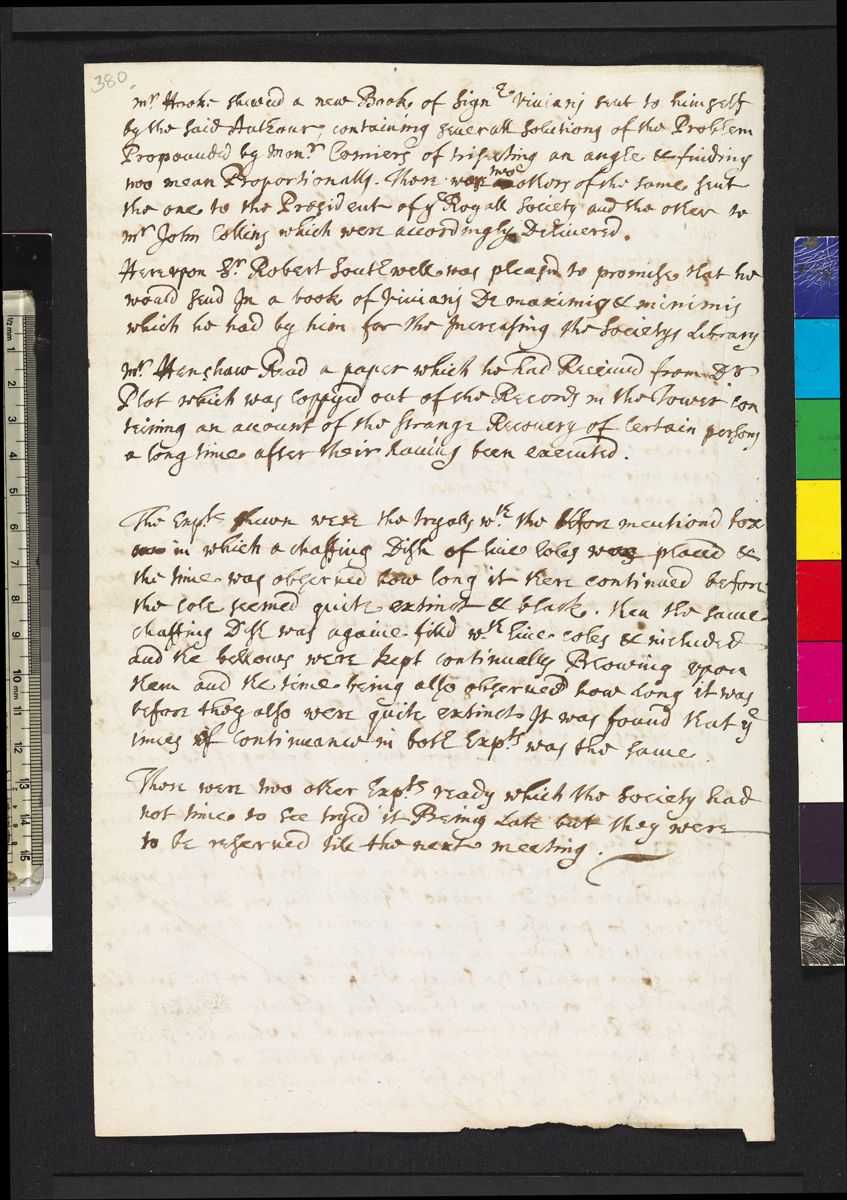 380
mr. Hooke shewd a new Booke of Signe Vivianj sent to himself
by the said Authour, containing severall solutions of the Problem
Propounded by Monsr Comiers of trisecting an angle & finding
two mean Proportionalls. There were two others of the same sent
the one to the Præsident of ye Royall Society and the other to
mr John Collins which were accordingly Delivered.
Hereupon Sr. Robert Southwell was pleasd to promise that he
would send In a book of Vivianj De maximis & minimis
which he had by him for the Increasing the Societys Library
mr. Henshaw Read a paper which he had Received from Dr
Plot which was coppyed out of the Records in the Tower con
teining an account of the strange Recovery of Certain persons
a long time after their having been executed.
The Expts shewn were the tryalls wth the before mentiond box
in which a chaffing Dish of live coles was placed &
the time was observed how long it there continued before
the cole seemed quite extinct & black. then the same
chaffing Dish was againe filld wth live coles & included
and the bellows were kept continually Blowing upon
them and the time being also observed how long it was
before they also were quite extinct It was found that ye
times of continuance in both Expts was the same.
There were two other Expts ready which the Society had
not time to see tryed it Being Late but they were
to be reserved till the next meeting.
1/2 mm 1
2
3
4
5
6
7
8
9
10 mm
11
12
13
14
15